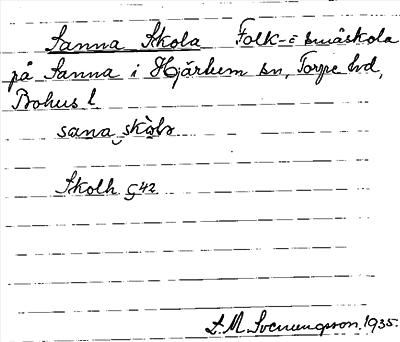 Sanna Skola Folk- & småskola
på Sanna i Hjärtum sn, Torpe hd,
Bohus l
sana skòla
Skolh G42
S.M. Svenungsson. 1935.